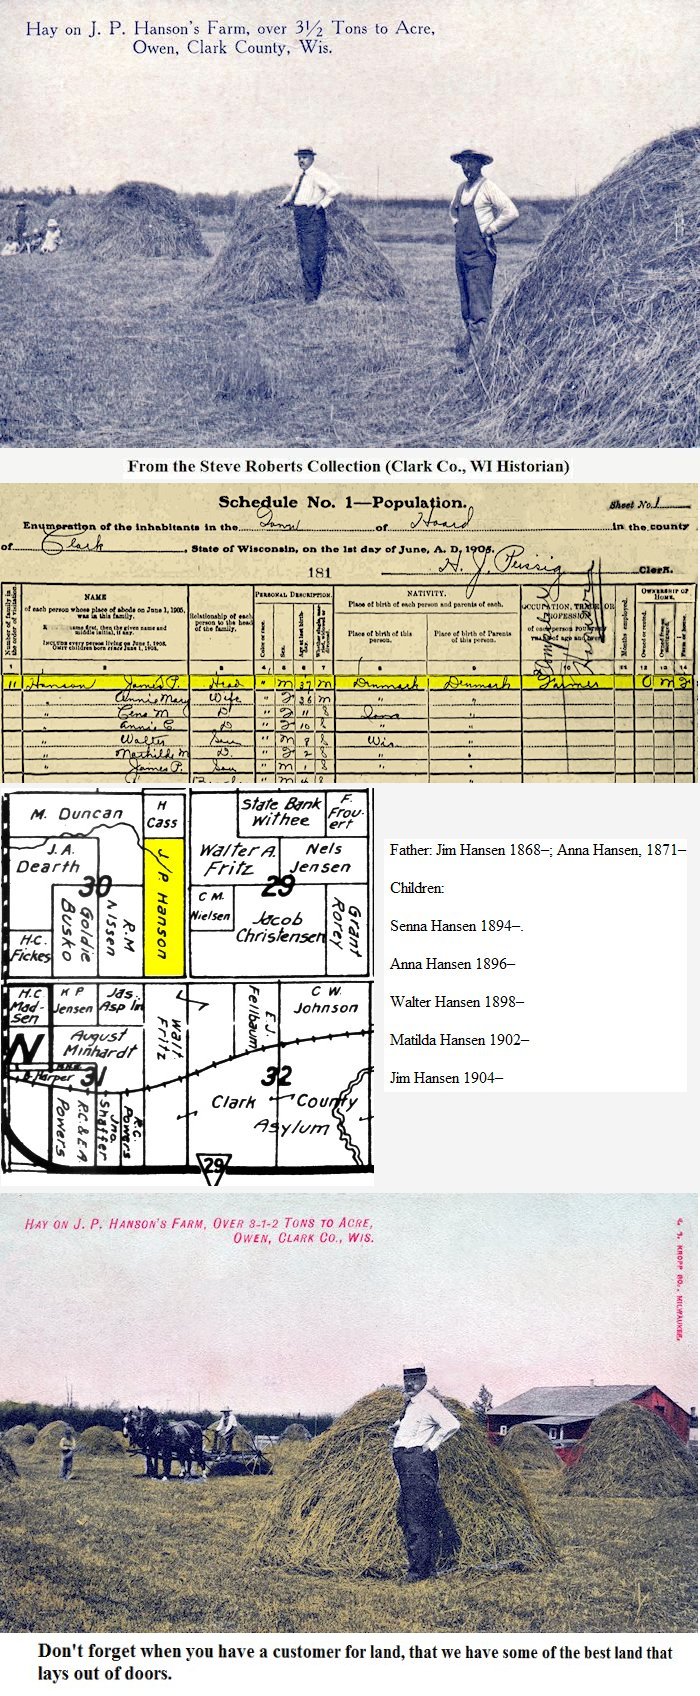 Hay on J. P. Hanson's Farm, over 3½ Tons to Acre,
Owen, Clark County, Wis.
From the Steve Roberts Collection (Clark Co., WI Historian)
Schedule No. 1—Population.
Sheet No. 1
Enumeration of the inhabitants in the Town of Hoard in the county
of Clark, State of Wisconsin, on the 1st day of June, A. D. 1905.
181
Clerk.
NAME
of each person whose place of abode on June 1, 1905,
was in this family.
Relationship of each
person to the head
of the family.
PERSONAL DESCRIPTION.
NATIVITY.
Place of birth of each person and parents of each.
Place of birth of this
person.
Place of birth of Parents
of this person.
OCCUPATION, TRADE OR
PROFESSION
Months employed.
OWNERSHIP OF
HOME.
Number of family in
the order of visitation.
11 Hanson James P. Head " M 37 M Denmark Denmark Farmer O M F
" Annie Mary Wife " F 36 M " "
" Cena M. D " F 11 S Iowa "
" Annie C. D " F 10 S " "
" Walter Son " M 8 S Wis. "
" Mathilde M D. " F 2 S " "
" James P. Son " M 1 S " "
M. Duncan
H
Cass
State Bank
Withee
F.
Frou-
ert
J.A.
Dearth
J/P Hanson
Walter A.
Fritz
Nels
Jensen
30
29
Goldie
Busko
R.M
Nissen
C M.
Nielsen
Jacob
Christensen
Grant
Rorey
H.C.
Fickes
H.C
Mad-
sen
K P
Jensen
Jas.
Asp lin
Walt.
Fritz
E.J.
Fellbaum
C W.
Johnson
N
August
Minhardt
Harper
31
32
R.C.& E.A.
Powers
Jno.
Shaffer
R.C.
Powers
Clark County
Asylum
29
Father: Jim Hansen 1868–; Anna Hansen, 1871–
Children:
Senna Hansen 1894–.
Anna Hansen 1896–
Walter Hansen 1898–
Matilda Hansen 1902–
Jim Hansen 1904–
HAY ON J. P. HANSON'S FARM, OVER 3-1-2 TONS TO ACRE,
OWEN, CLARK CO., WIS.
KROPP CO., MILWAUKEE,
Don't forget when you have a customer for land, that we have some of the best land that
lays out of doors.